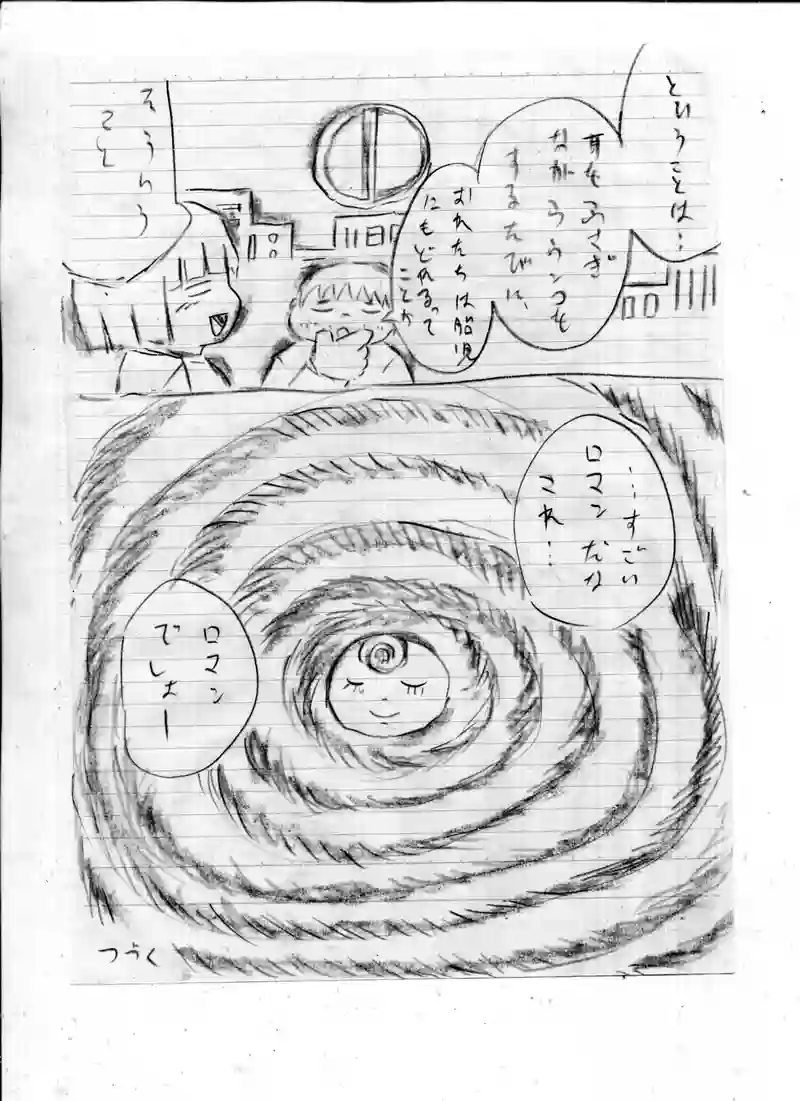 ということは…
耳をふさぎ
ながらウンコを
するたびに、
おれたちは胎児
にもどれるって
ことか
そういう
こと
…すごい
ロマンだな
それ…
ロマン
でしょー
つづく